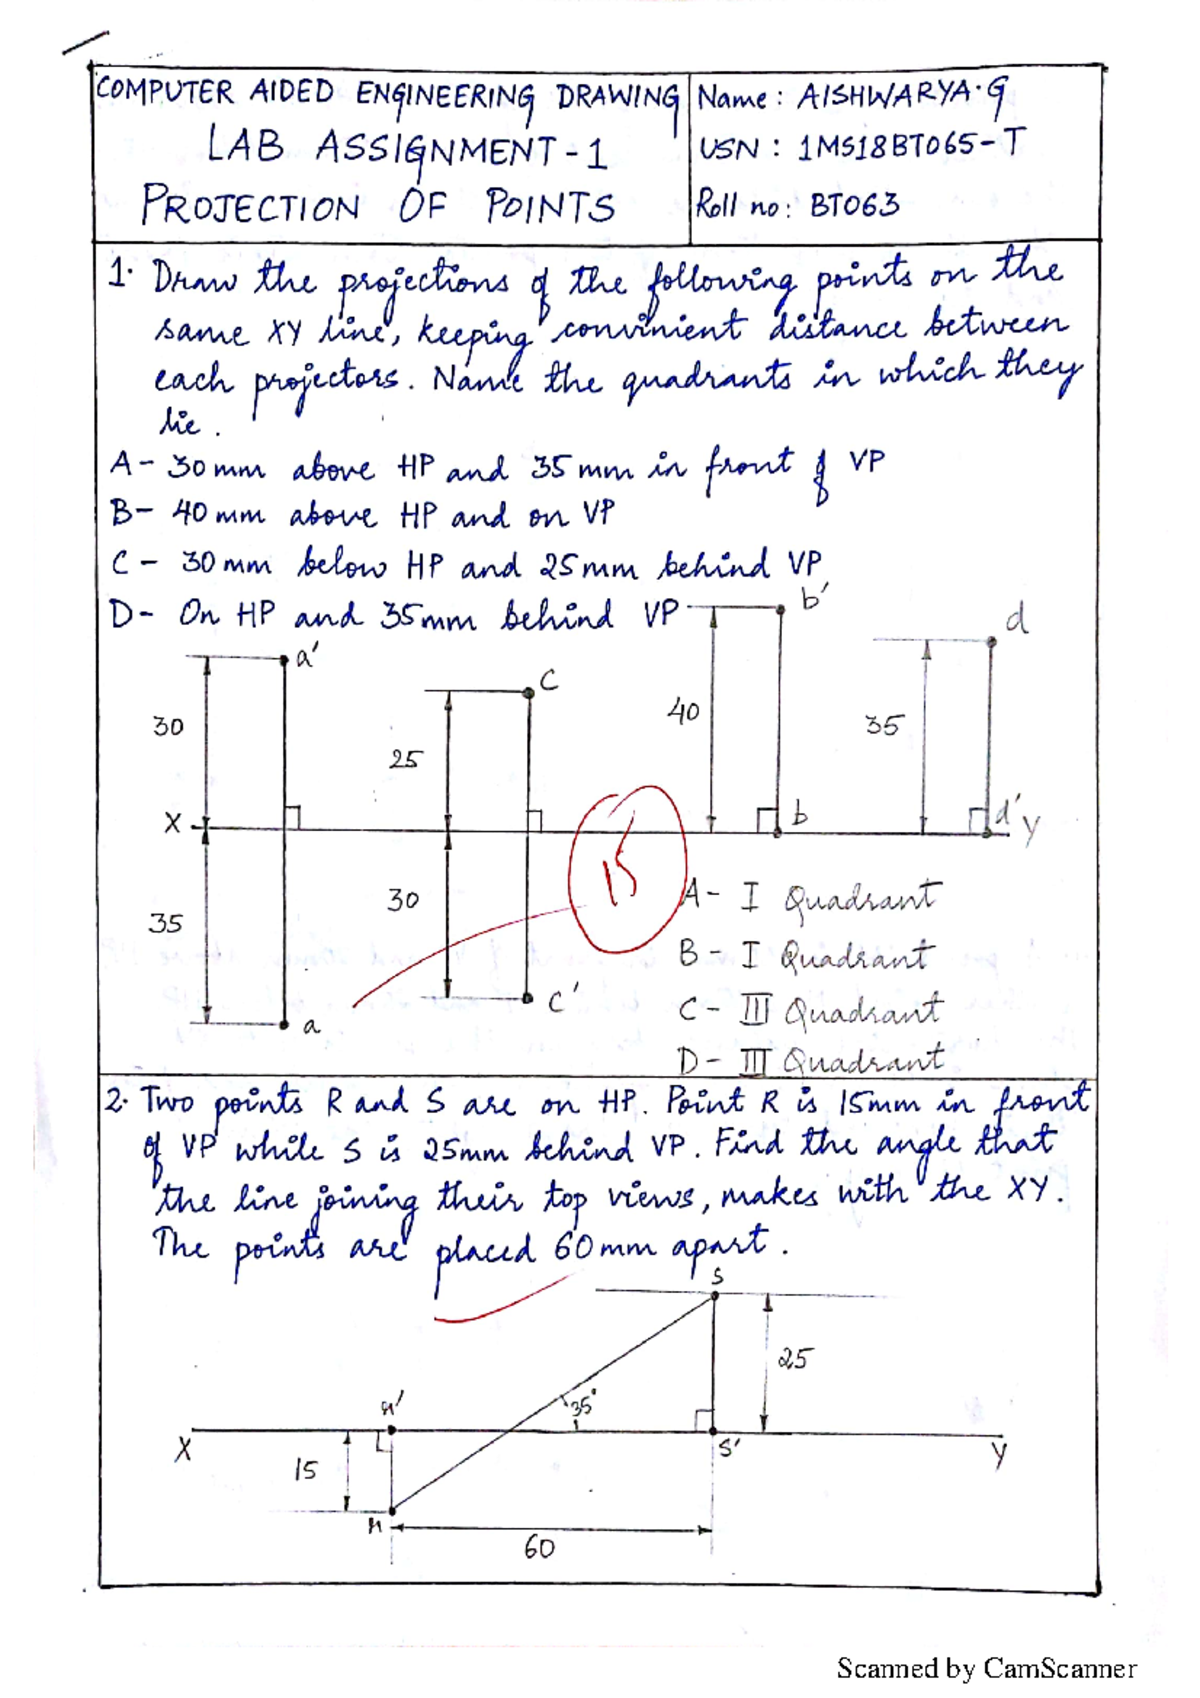 COMPUTER AIDED ENGINEERING DRAWING
LAB ASSIGNMENT-1
PROJECTION OF POINTS
Name: AISHWARYA.G
USN: 1MS18BT065-T
Roll no: BT063
1. Draw the projections of the following points on the
same XY line, keeping convinient distance between
each projectors. Name the quadrants in which they
lie.
A- 30mm above HP and 35mm in front of VP
B- 40mm above HP and on VP
C- 30mm below HP and 25mm behind VP
D- On HP and 35mm behind VP
b'
d
a'
c
30
25
40
35
X
b
d'
Y
15
35
30
c'
a
A- I Quadrant
B- I Quadrant
C- III Quadrant
D- III Quadrant
2. Two points R and S are on HP. Point R is 15mm in front
of VP while S is 25mm behind VP. Find the angle that
the line joining their top views, makes with the XY.
The points are placed 60mm apart.
s
25
r'
35°
X
s'
Y
15
r
60
Scanned by CamScanner